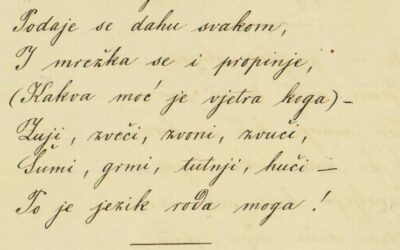 Podaje se dahu svakom,
I mrežka se i propinje,
(Kakva moć je vjetra koga) –
Zuji, zveči, zvoni, zvuči,
Šumi, grmi, tutnji, huči –
To je jezik roda moga!